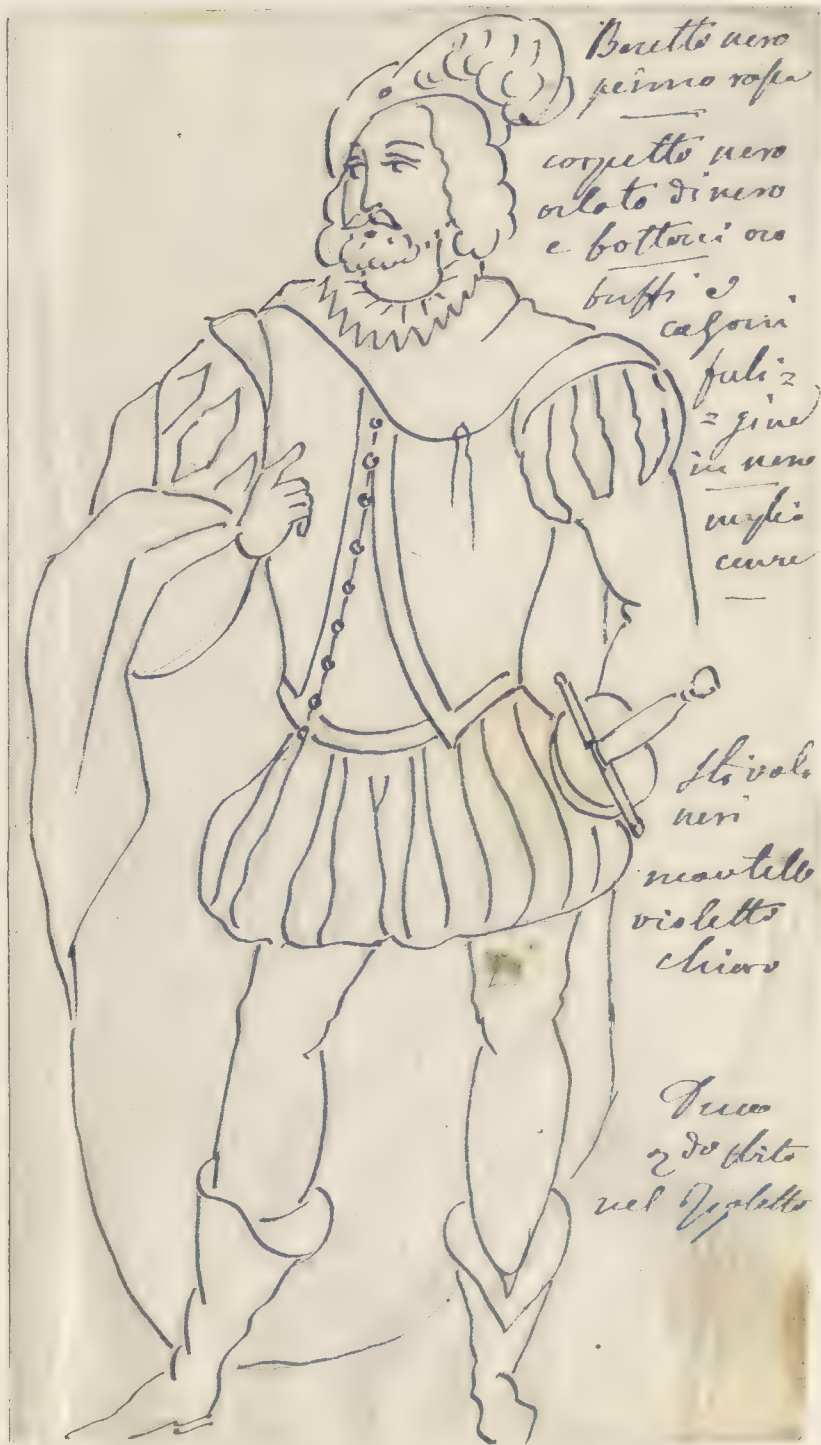 Beretto nero
penna rossa
corpetto nero
orlato di nero
e bottoni oro
buffi e
calzoni
fuli=
=gine
in nero
maglia
cenere
Stivali
neri
mantello
violetto
chiaro
Duca
2do abito
nel Rigoletto